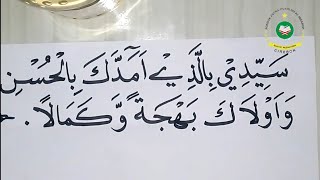 سَيِّدِيْ بِالَّذِيْ اَمَدَّكَ بِالْحُسْنِ
وَاَوْلَاكَ بَهْجَةً وَّكَمَالًا.
CIREBON